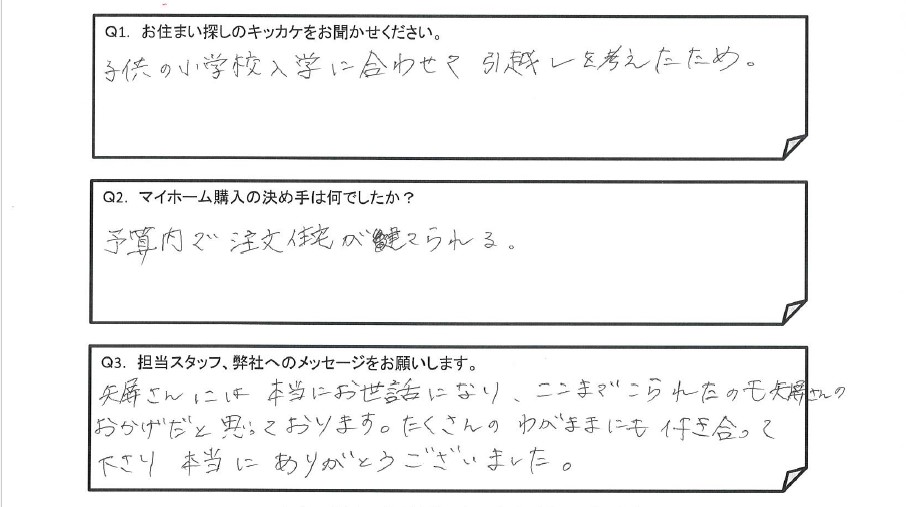 Q1. お住まい探しのキッカケをお聞かせください。
子供の小学校入学に合わせて 引越しを考えたため。
Q2. マイホーム購入の決め手は何でしたか?
予算内で 注文住宅が建てられる。
Q3. 担当スタッフ、弊社へのメッセージをお願いします。
さんには 本当にお世話になり、ここまでこられたのも さんの
おかげだと 思っております。たくさんの わがままにも 付き合って
下さり 本当に ありがとうございました。